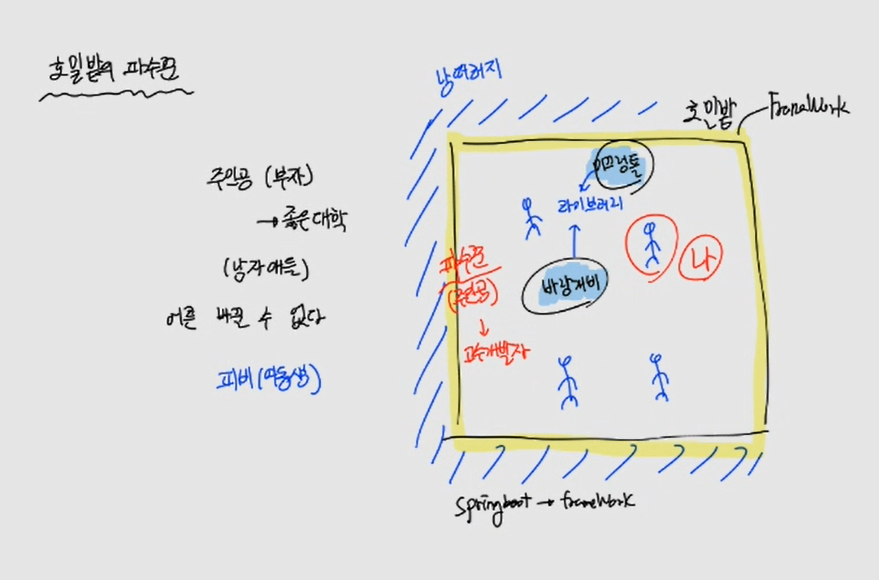 호밀밭의 파수꾼
주인공 (부자)
→ 좋은대학
(남자애들)
어른 바뀔 수 없다
피비(여동생)
낭떠러지
호밀밭
FrameWork
미끄럼틀
라이브러리
나
파수꾼
(주인공)
바람개비
↓
고수개발자
springboot → framework